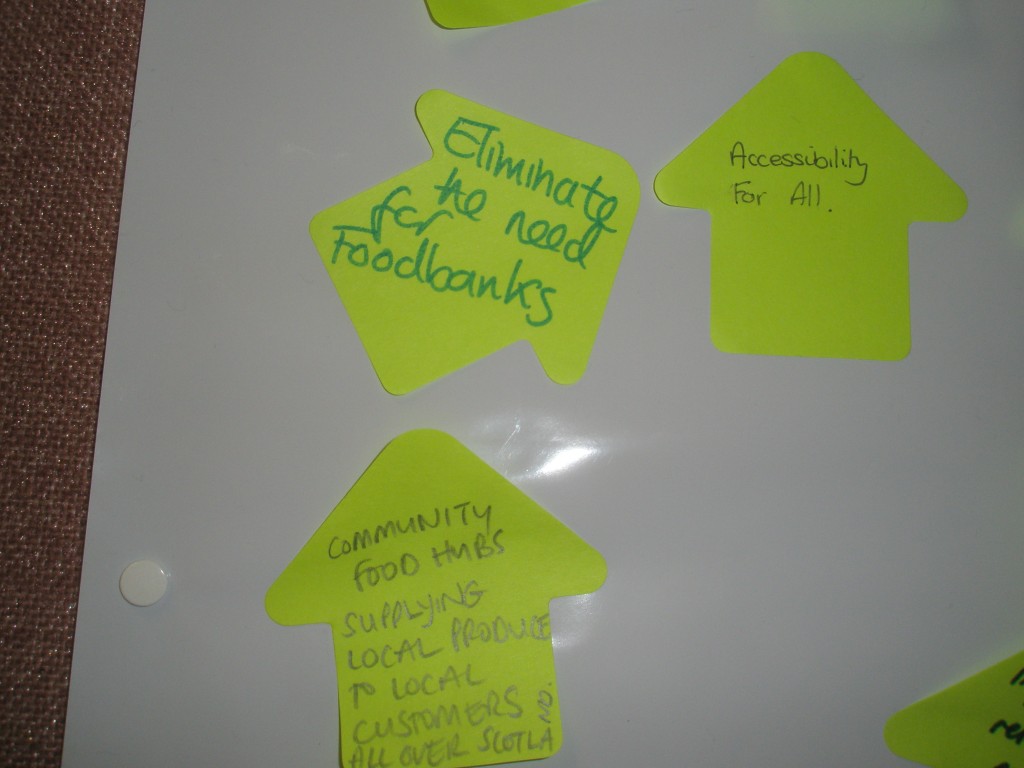 Eliminate
the need
for
Foodbanks
Accessibility
For All.
COMMUNITY
FOOD HUBS
SUPPLYING
LOCAL PRODUCE
TO LOCAL
CUSTOMERS
ALL OVER SCOTLAND.